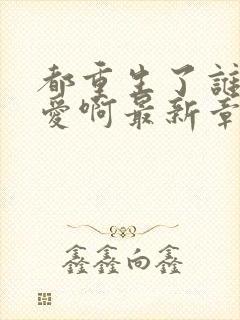 都重生了誰
愛啊最新章
鑫鑫向鑫